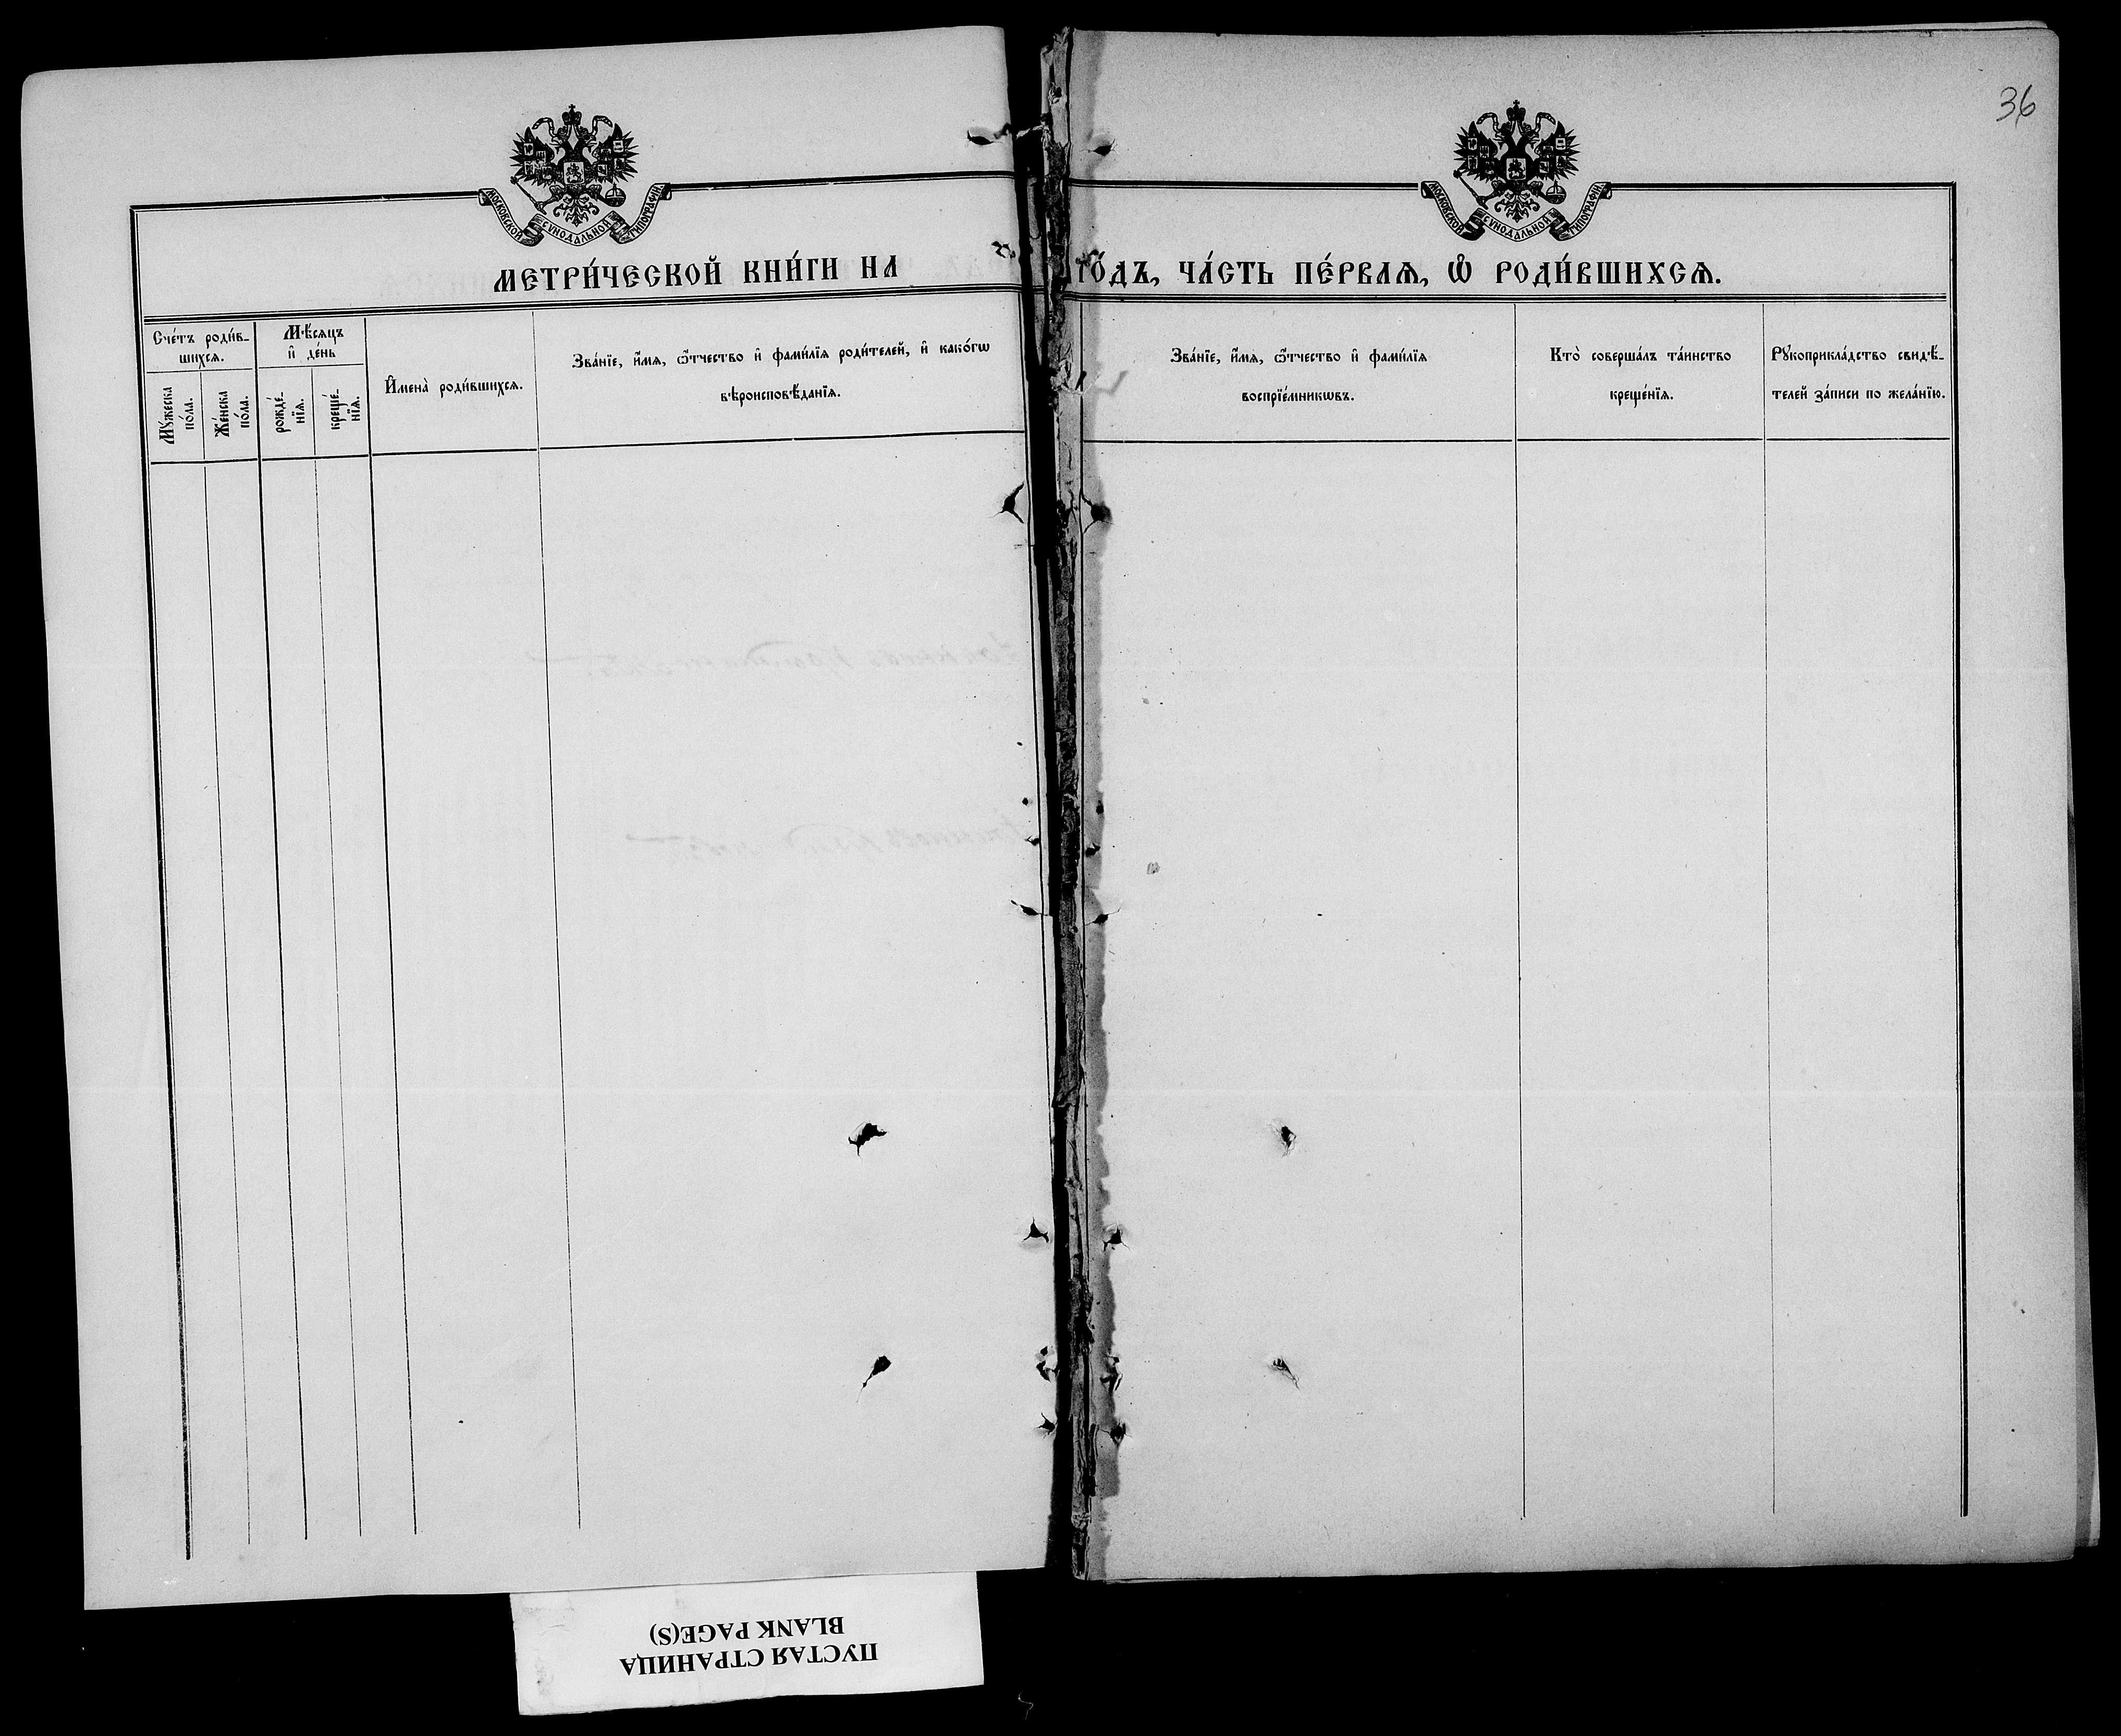 36
МОСКОВСКОЙ СѴНОДАЛЬНОЙ ТИПОГРАФІИ
МОСКОВСКОЙ СѴНОДАЛЬНОЙ ТИПОГРАФІИ
МЕТРИ́ЧЕСКОЙ КНИ́ГИ НА ГО́ДЪ, ЧА́СТЬ ПЕ́РВАѦ, Ѡ҆ РОДИ́ВШИХСѦ.
Сче́тъ роди́в-
шихсѧ.
Мꙋ́жеска
по́ла.
Же́нска
по́ла.
Мѣ́сѧцъ
и҆ де́нь
рожде́-
нїѧ.
креще́-
нїѧ.
И҆мена̀ роди́вшихсѧ.
Зва́нїе, и҆́мѧ, ѻ҆́тчество и҆ фами́лїѧ роди́телей, и҆ како́гѡ
вѣроисповѣ́данїѧ.
Зва́нїе, и҆́мѧ, ѻ҆́тчество и҆ фами́лїѧ
воспрїе́мникѡвъ.
Кто̀ соверша́лъ та́инство
креще́нїѧ.
Рꙋкоприкла́дство свидѣ́-
телей за́писи по жела́нїю.
ПУСТАЯ СТРАНИЦА
BLANK PAGE(S)